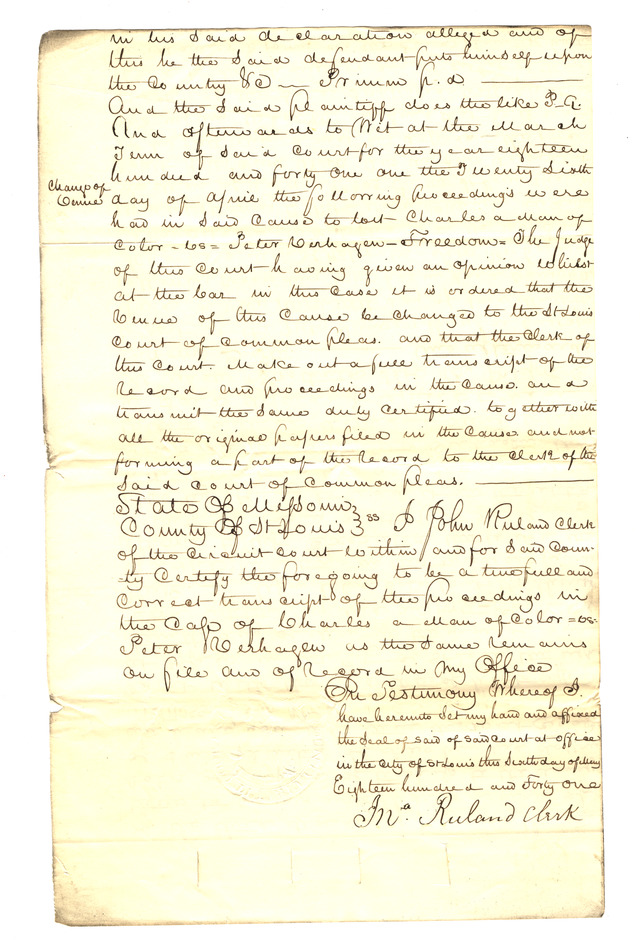 in his said declaration alleged and of
this he the said defendant puts himself upon
the Country &C — Primm p. d
And the said plaintiff does the like P. Q.
And afterwards to Wit at the March
Term of said Court for the year eighteen
hundred and forty one one the Twenty Sixth
Change of
Venue
day of April the following proceedings were
had in said Cause to wit Charles a Man of
Color - vs = Peter Verhagen - Freedom = The Judge
of this Court having given an opinion whilst
at the bar in this Case it is ordered that the
Venue of this Cause be changed to the St Louis
Court of Common pleas. and that the Clerk of
this Court. Make out a full transcript of the
Record and proceedings in the Cause and
transmit the same duly certified. together with
all the original papers filed in the Cause and not
forming a part of the Record to the Clerk of the
said Court of Common pleas.
State Of Missouri
County Of St Louis } ss I John Ruland Clerk
of the Circuit Court within and for said Coun-
-ty Certify the foregoing to be a true full and
Correct transcript of the proceedings in
the Case of Charles a Man of Color = vs-
Peter Verhagen as the same remains
on file and of Record in My Office
In Testimony Whereof I.
have hereunto set my hand and affixed
the seal of said of said Court at office
in the City of St Louis this Sixth day of May
Eighteen hundred and Forty One
Jno. Ruland Clerk